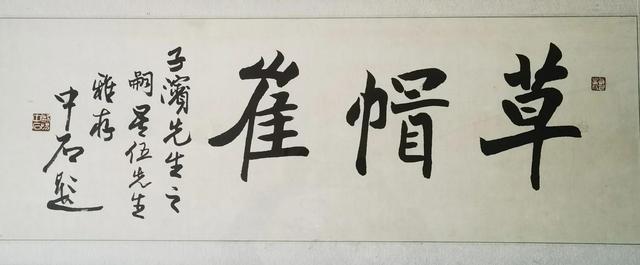 草帽崔
子濱先生之
嗣星伍先生
雅存
中石題